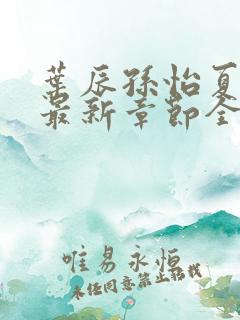 葉辰孫怡夏
最新章節全
唯易永恆
未经同意禁止转载